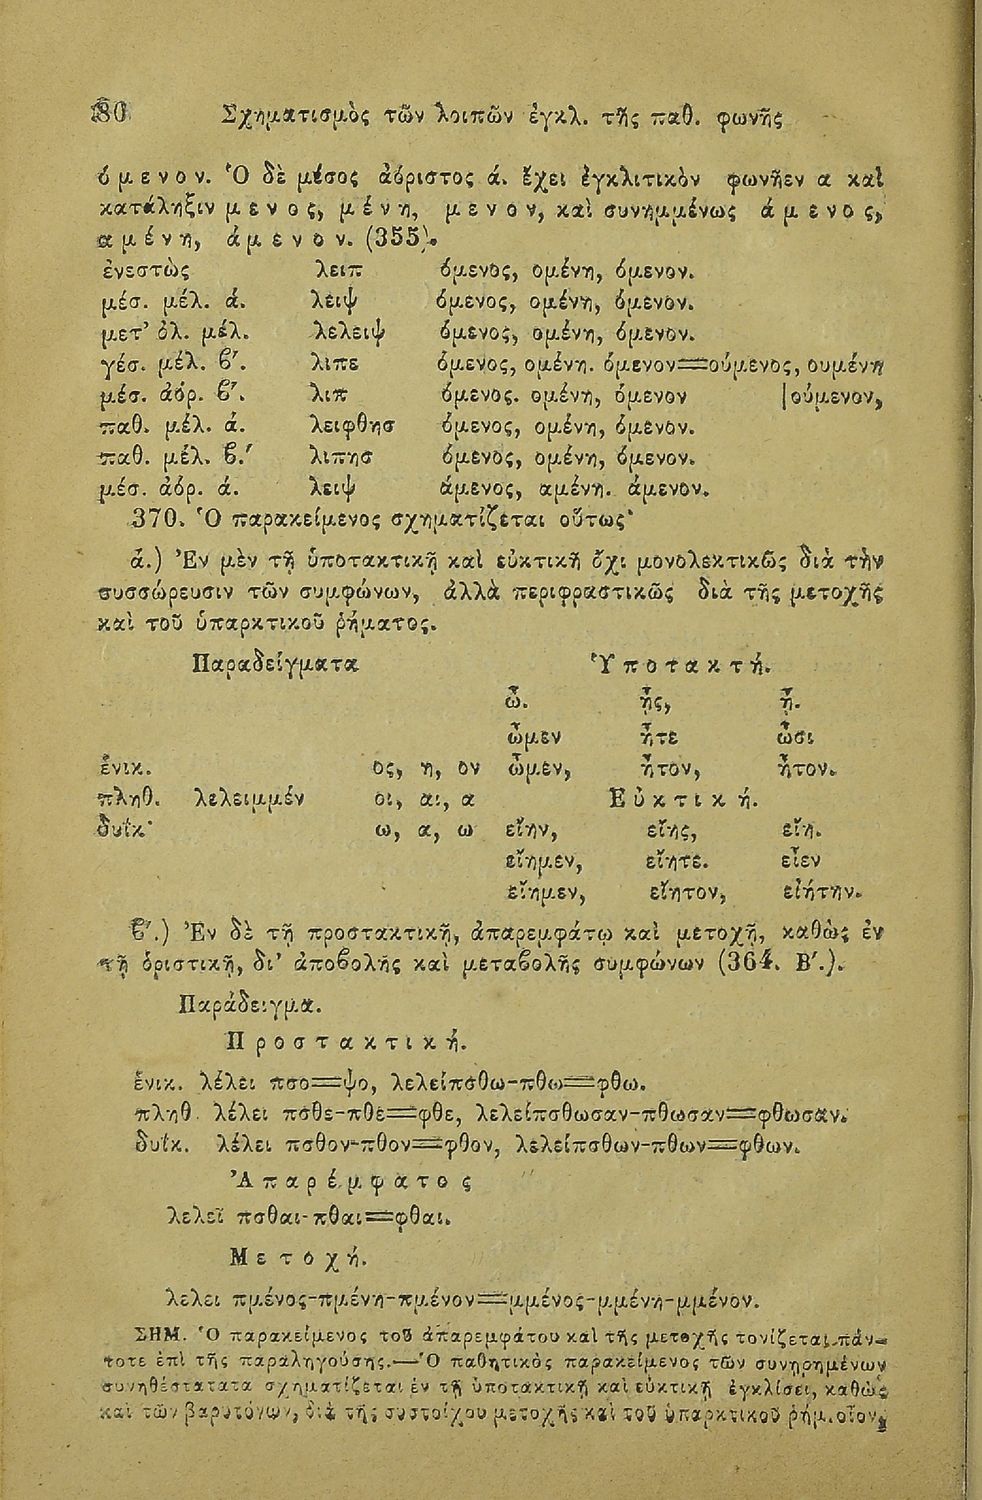 180 Σχηματισμὸς τῶν λοιπῶν ἐγκλ. τῆς παθ. φωνῆς
όμενον. Ὁ δὲ μέσος ἀόριστος ά. ἔχει ἐγκλιτικὸν φωνῆεν α καὶ
κατάληξιν μενος, μένη, μενον, καὶ συνημμένως άμενος,
αμένη, άμενον. (355).
ἐνεστὼς λειπ όμενος, ομένη, όμενον.
μέσ. μέλ. ά. λειψ όμενος, ομένη, όμενον.
μετ’ ὀλ. μέλ. λελειψ όμενος, ομένη, όμενον.
γέσ. μέλ. ϐ′. λιπε όμενος, ομένη. όμενον=ούμενος, ουμένη
μέσ. ἀόρ. ϐ′. λιπ όμενος. ομένη, όμενον |ούμενον,
παθ. μέλ. ά. λειφθησ όμενος, ομένη, όμενον.
παθ. μέλ. ϐ.′ λιπησ όμενος, ομένη, όμενον.
μέσ. ἀόρ. ά. λειψ άμενος, αμένη. άμενον.
370. Ὁ παρακείμενος σχηματίζεται οὕτως·
ά.) Ἐν μὲν τῇ ὑποτακτικῇ καὶ εὐκτικῇ ὄχι μονολεκτικῶς διὰ τὴν
συσσώρευσιν τῶν συμφώνων, ἀλλὰ περιφραστικῶς διὰ τῆς μετοχῆς
καὶ τοῦ ὑπαρκτικοῦ ῥήματος.
Παραδείγματα Ὑποτακτή.
ὦ. ᾖς, ᾖ.
ὦμεν ἦτε ὦσι
ἑνικ. ος, η, ον ὦμεν, ἦτον, ἦτον.
πληθ. λελειμμέν οι, αι, α Εὐκτική.
δυϊκ· ω, α, ω εἴην, εἴης, εἴη.
εἴημεν, εἴητε. εἶεν
εἴημεν, εἴητον, εἰήτην.
ϐ′.) Ἐν δὲ τῇ προστακτικῇ, ἀπαρεμφάτῳ καὶ μετοχῇ, καθὼς ἐν
τῇ ὁριστικῇ, δι’ ἀποϐολῆς καὶ μεταϐολῆς συμφώνων (364. Β′.).
Παράδειγμα.
Προστακτική.
ἑνικ. λέλει πσο=ψο, λελείπσθω-πθω=φθω.
πληθ. λέλει πσθε-πθε=φθε, λελείπσθωσαν-πθωσαν=φθωσαν.
δυϊκ. λέλει πσθον-πθον=φθον, λελείπσθων-πθων=φθων.
Ἀπαρέμφατος
λελεῖ πσθαι-πθαι=φθαι.
Μετοχή.
λελει πμένος-πμένη-πμένον=μμένος-μμένη-μμένον.
ΣΗΜ. Ὁ παρακείμενος τοῦ ἀπαρεμφάτου καὶ τῆς μετοχῆς τονίζεται πάν-
τοτε ἐπὶ τῆς παραληγούσης.—Ὁ παθητικὸς παρακείμενος τῶν συνηρημένων
συνηθέστατατα σχηματίζεται ἐν τῇ ὑποτακτικῇ καὶ εὐκτικῇ ἐγκλίσει, καθὼς
καὶ τῶν βαρυτόνων, διὰ τῆς συστοίχου μετοχῆς καὶ τοῦ ὑπαρκτικοῦ ῥήμ. οἷον,